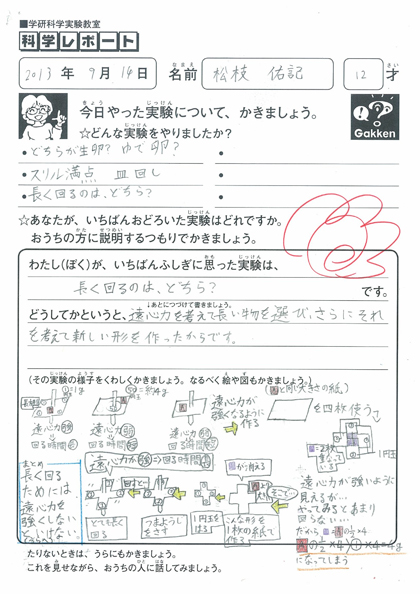 ■学研科学実験教室
科学レポート
2013年 9月 14日 名前 松枝 佑記 12才
今日やった実験について、かきましょう。
☆どんな実験をやりましたか?
Gakken
・どちらが生卵?ゆで卵?
・スリル満点 皿回し
・長く回るのは、どちら?
☆あなたが、いちばんおどろいた実験はどれですか。
おうちの方に説明するつもりでかきましょう。
わたし(ぼく)が、いちばんふしぎに思った実験は、
長く回るのは、どちら?
です。
↓あとにつづけて書きましょう。
どうしてかというと、遠心力を考えて長い物を選び、さらにそれ
を考えて新しい形を作ったからです。
(その実験の様子をくわしくかきましょう。なるべく絵や図もかきましょう。)
遠心力が
強くなるように
作る
と同じ大きさの紙。
を四枚使う
遠心力
回る時間
遠心力
回る時間
遠心力
回る時間
遠心力が強い⇒回る時間
から考える
1円玉
まとめ
長く回る
ためには、
遠心力を
強くしない
といけない。
とても長く
回る
つまようじ
をさす
1円玉を
はる
こんな形を
1枚の紙で
作る
そこで…
遠心力が強いように
見えるが…
やってみるとあまり
回らない…
だから
になってしまう
たりないときは、うらにもかきましょう。
これを見せながら、おうちの人に話してみましょう。